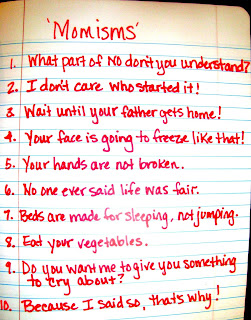 'Momisms'
1. What part of NO don't you understand?
2. I don't care who started it!
3. Wait until your father gets home!
4. Your face is going to freeze like that!
5. Your hands are not broken.
6. No one ever said life was fair.
7. Beds are made for sleeping, not jumping.
8. Eat your vegetables.
9. Do you want me to give you something
to cry about?
10. Because I said so, that's why!